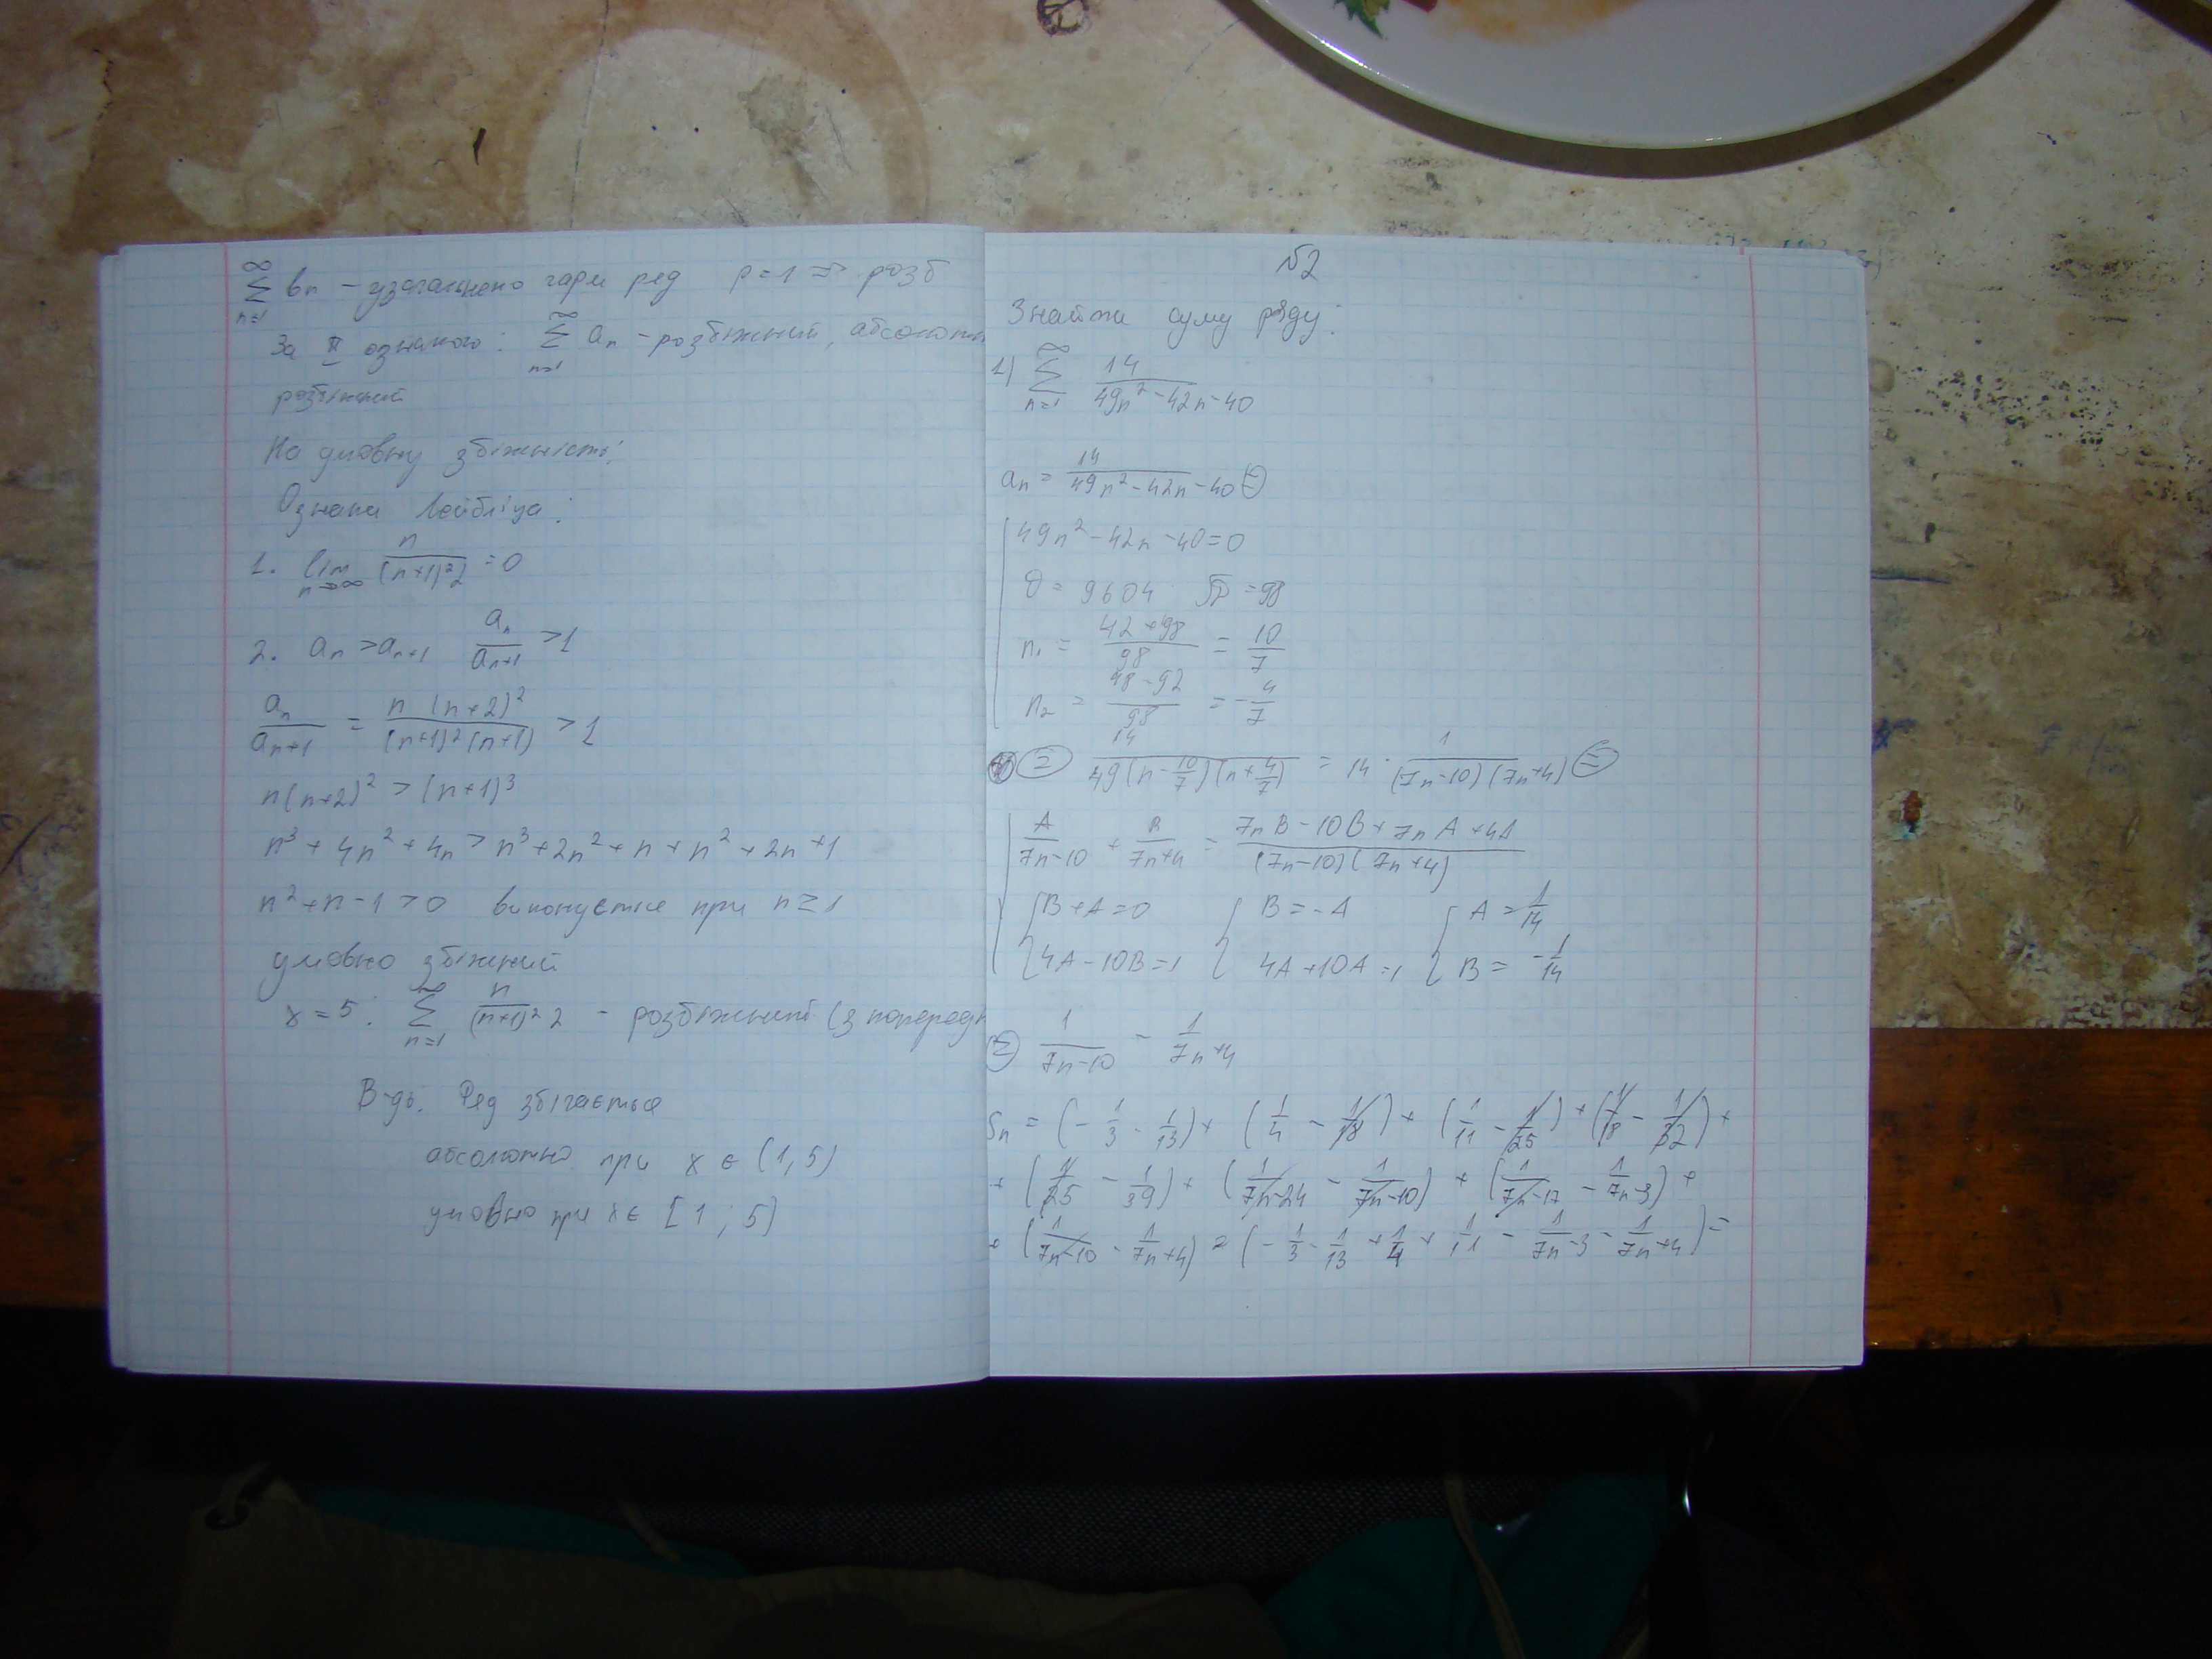 ∞
∑ bn - узагальнено гарм ряд p=1 ⇒ розб
n=1
За II ознакою: ∑ an - розбіжний, абсолютн
n=1
розбіжний
На умовну збіжність:
Ознака Лейбніца:
1. lim n/((n+1)²2) = 0
n→∞
2. an > an+1 an/an+1 > 1
an/an+1 = n (n+2)²/((n+1)²(n+1)) > 1
n(n+2)² > (n+1)³
n³ + 4n² + 4n > n³ + 2n² + n + n² + 2n + 1
n² + n - 1 > 0 виконується при n ≥ 1
умовно збіжний
x = 5: ∑ n/((n+1)² 2) - розбіжний (з поперед
n=1
В-дь: Ряд збігається
абсолютно при x ∈ (1, 5)
умовно при x ∈ [1 ; 5)
№2
Знайти суму ряду:
1) ∑ 14/(49n² - 42n - 40)
n=1
an = 14/(49n² - 42n - 40) ⊜
49n² - 42n - 40 = 0
D = 9604 √D = 98
n₁ = (42 + 98)/98 = 10/7
n₂ = (48 - 92)/98 = -4/7
⊜ 14/(49(n - 10/7)(n + 4/7)) = 14 · 1/((7n-10)(7n+4)) ⊜
A/(7n-10) + B/(7n+4) = (7nB - 10B + 7nA + 4A)/((7n-10)(7n+4))
{B + A = 0 {B = -A {A = 1/14
{4A - 10B = 1 {4A + 10A = 1 {B = -1/14
⊜ 1/(7n-10) - 1/(7n+4)
Sn = (-1/3 - 1/13) + (1/4 - 1/18) + (1/11 - 1/25) + (1/18 - 1/32) +
+ (1/25 - 1/39) + (1/(7n-24) - 1/(7n-10)) + (1/(7n-17) - 1/(7n-3)) +
+ (1/(7n-10) - 1/(7n+4)) = (-1/3 - 1/13 + 1/4 + 1/11 - 1/(7n-3) - 1/(7n+4)) =